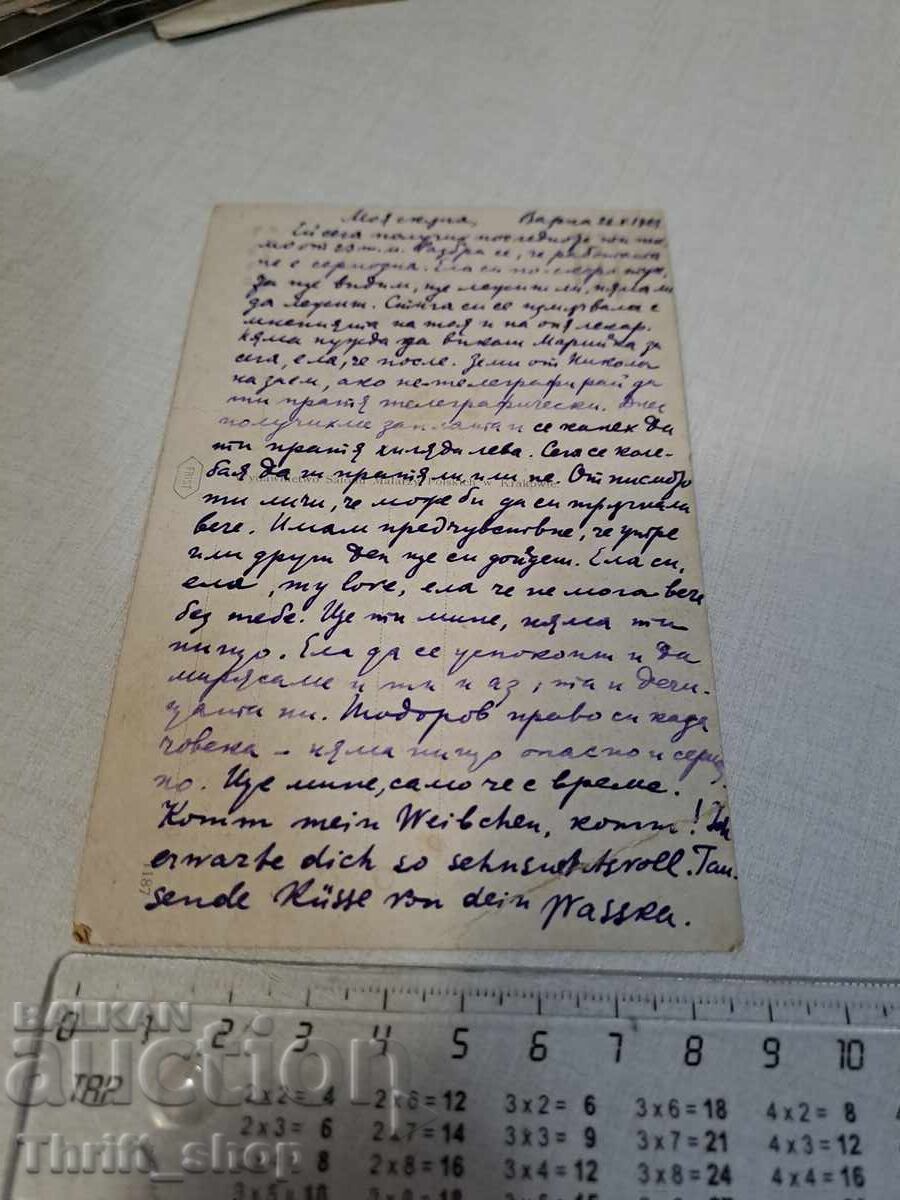 Моя скъпа, Варна
Ей сега получих последното ти пис
мо от 23 т.м. Разбра се, че работата
не е сериозна. Ела си по-скоро тук,
да ще видим, ще лежиш ли, няма ли
да лежиш. Стига си се измъчвала с
мненията на тоя и на оня лекар.
Няма нужда да викаш Марийка за
сега, ела, че после. Земи от Никола
на заем, ако не телеграфирай да
ти пратя телеграфически. Днес
получихме заплати и се канех да
ти пратя хиляда лева. Сега се коле-
бая да ти пратя ли или не. От писмото
ти личи, че може би да си тръгнала
вече. Имам предчувствие, че утре
или други ден ще си дойдеш. Ела си,
ела, my love, ела че не мога вече
без тебе. Ще ти мине, няма ти
нищо. Ела да се успокоиш и да
мирясаме и ти и аз, та и дечи-
цата ни. Тодоров право си каза
човека – няма нищо опасно и сериоз
но. Ще мине, само че с време.
Komm mein Weibchen, komm! Ich
erwarte dich so sehnsuchtsvoll. Tau-
sende Küsse von dein Wasska.
Wydawnictwo Salonu Malarzy Polskich w Krakowie.
187
BALKAN
auction
Thrift_shop
0 1 2 3 4 5 6 7 8 9 10
2 x 2 = 4 2 x 6 = 12 3 x 2 = 6 3 x 6 = 18 4 x 2 = 8
2 x 3 = 6 2 x 7 = 14 3 x 3 = 9 3 x 7 = 21 4 x 3 = 12
= 8 2 x 8 = 16 3 x 4 = 12 3 x 8 = 24 4 x 4 = 16